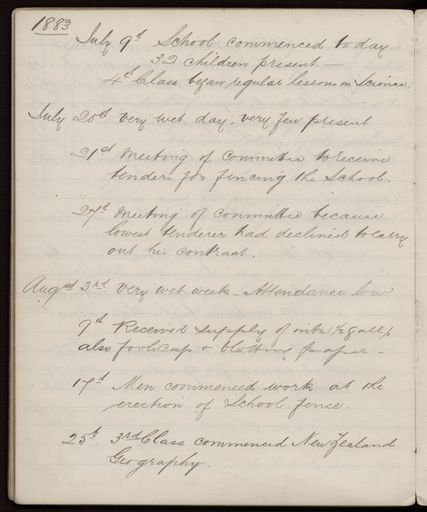 1883
July 9th School commenced to day
32 children present —
4th Class began regular lessons in Science.
July 20th Very wet day. very few present
21st Meeting of Committee to receive
tenders for fencing the School.
27th Meeting of Committee because
lowest tenderer had declined to carry
out his contract.
Augst 3rd Very wet week — Attendance low
9th Received supply of ink (½ gall),
also foolscap & blotting paper —
17th Men commenced work at the
erection of School fence.
25th 3rd Class commenced New Zealand
Geography.